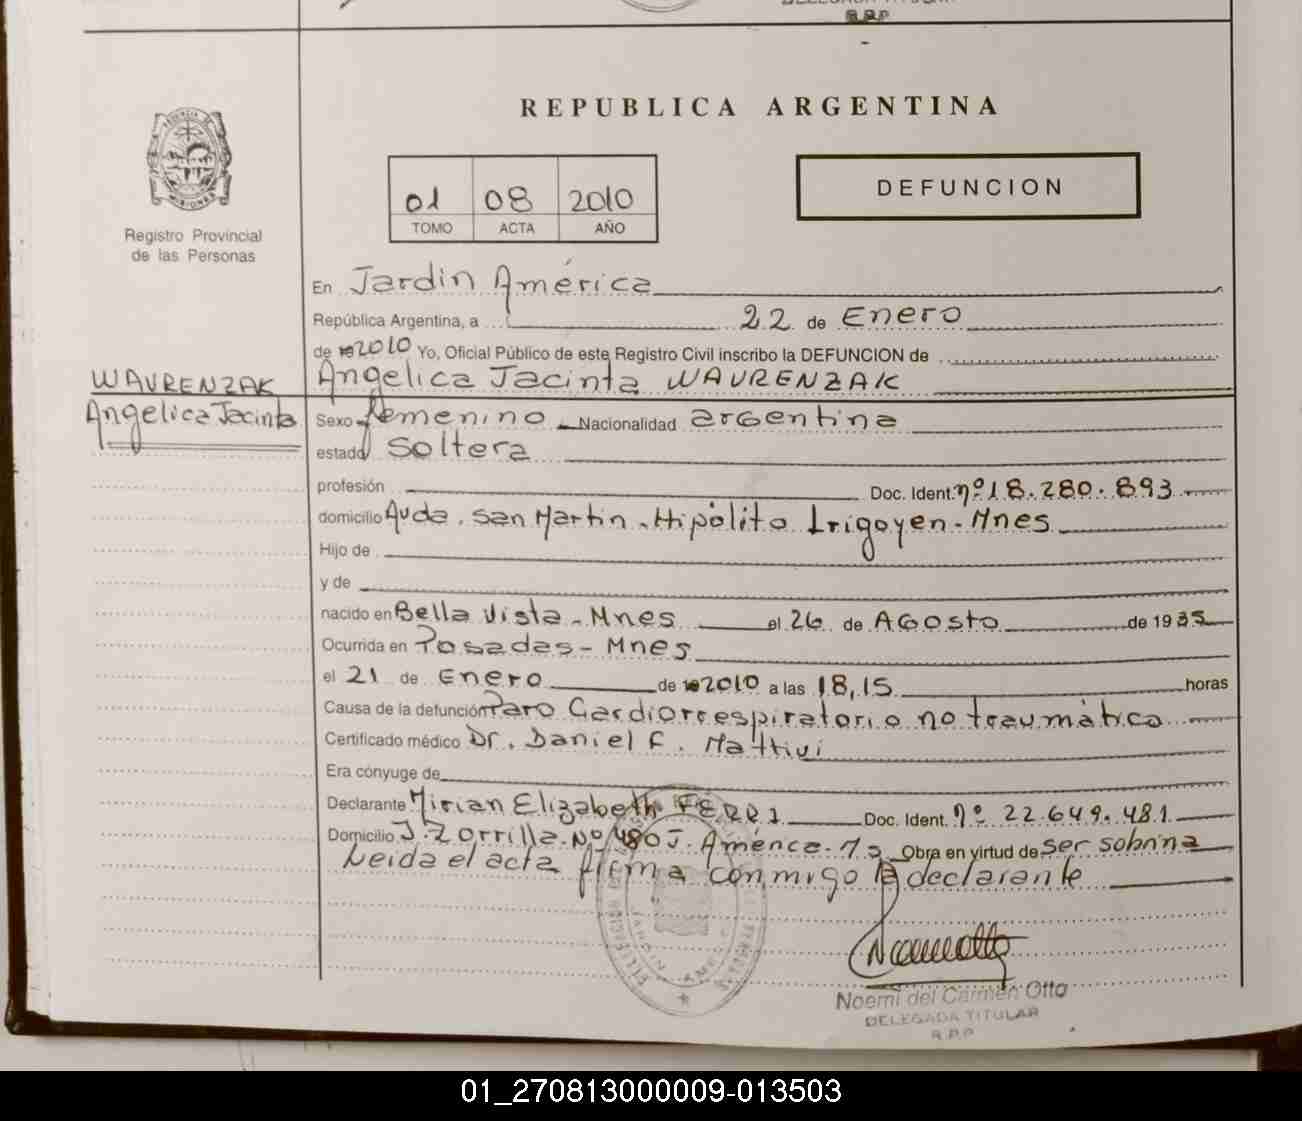 R.P.P
REPUBLICA ARGENTINA
01 08 2010
TOMO ACTA AÑO
DEFUNCION
Registro Provincial
de las Personas
En Jardin América
República Argentina, a 22 de Enero
de 2010 Yo, Oficial Público de este Registro Civil inscribo la DEFUNCION de
WAVRENZAK
Angelica Jacinta
Angelica Jacinta WAVRENZAK
Sexo femenino Nacionalidad argentina
estado Soltera
profesión Doc. Ident. nº 18.280.893
domicilio Avda. San Martin - Hipólito Irigoyen - Mnes
Hijo de
y de
nacido en Bella Vista - Mnes el 26 de Agosto de 1935
Ocurrida en Posadas - Mnes
el 21 de Enero de 2010 a las 18,15 horas
Causa de la defunción Paro Cardiorrespiratorio no traumático
Certificado médico Dr. Daniel F. Mattivi
Era cónyuge de
Declarante Mirian Elizabeth FERRI Doc. Ident. nº 22.649.481
Domicilio J. Zorrilla Nº 480 J. América. Obra en virtud de ser sobrina
Leida el acta firma conmigo la declarante
Noemi del Carmen Otto
DELEGADA TITULAR
R.P.P
01_270813000009-013503